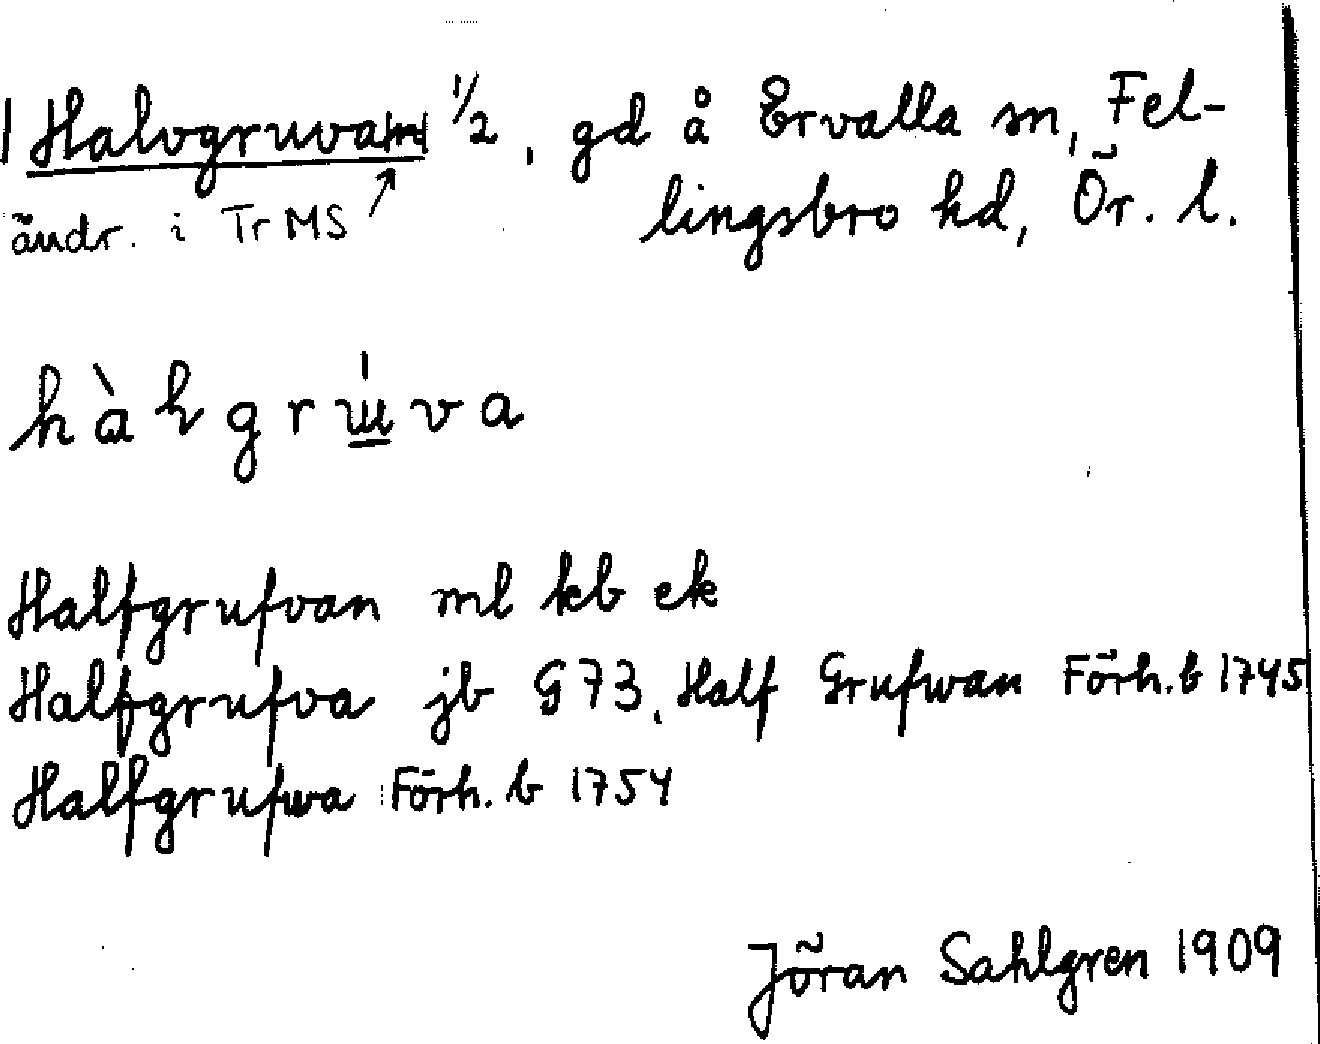 Halvgruvan 1/2, gd å Ervalla sn, Fel-
lingsbro hd, Ör. l.
ändr. i Tr MS ↗
hàlgrúva
Halfgrufvan ml kb ek
Halfgrufva jb G 73, Half Grufwan Förh. b 1745
Halfgrufwa Förh. b 1754
Jöran Sahlgren 1909